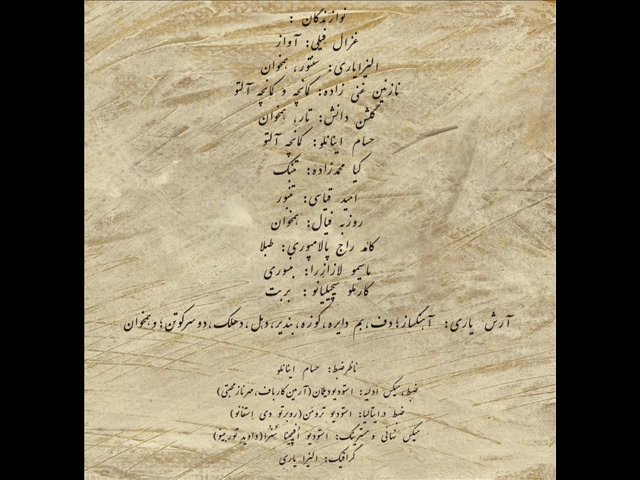 نوازندگان :
غزال فیلی: آواز
النیرا یاری: سنتور، همخوان
نازنین غنی زاده: کمانچه و کمانچه آلتو
گلشن دانش: تار، همخوان
حسام اینانلو: کمانچه آلتو
کیا محمدزاده: تنبک
امید قیاسی: تنبور
روزبه فیال: همخوان
کاند راج پالامپوری: طبلا
ماسیمو لازازرا: بنسوری
کارملو سیچیلیانو : بربت
آرش یاری: آهنگساز؛ دف، بم دایره، کوزه، بندیر، دهل، دهلک، دوسرکوتن؛ و همخوان
ناظر ضبط: حسام اینانلو
ضبط، میکس اولیه: استودیو (آرمین کارباف، مهرناز محبتی)
ضبط در ایتالیا: استودیو (روبرتو دی استفانو)
میکس نهائی و مسترینگ: استودیو (داوید تورینو)
گرافیک: النیرا یاری